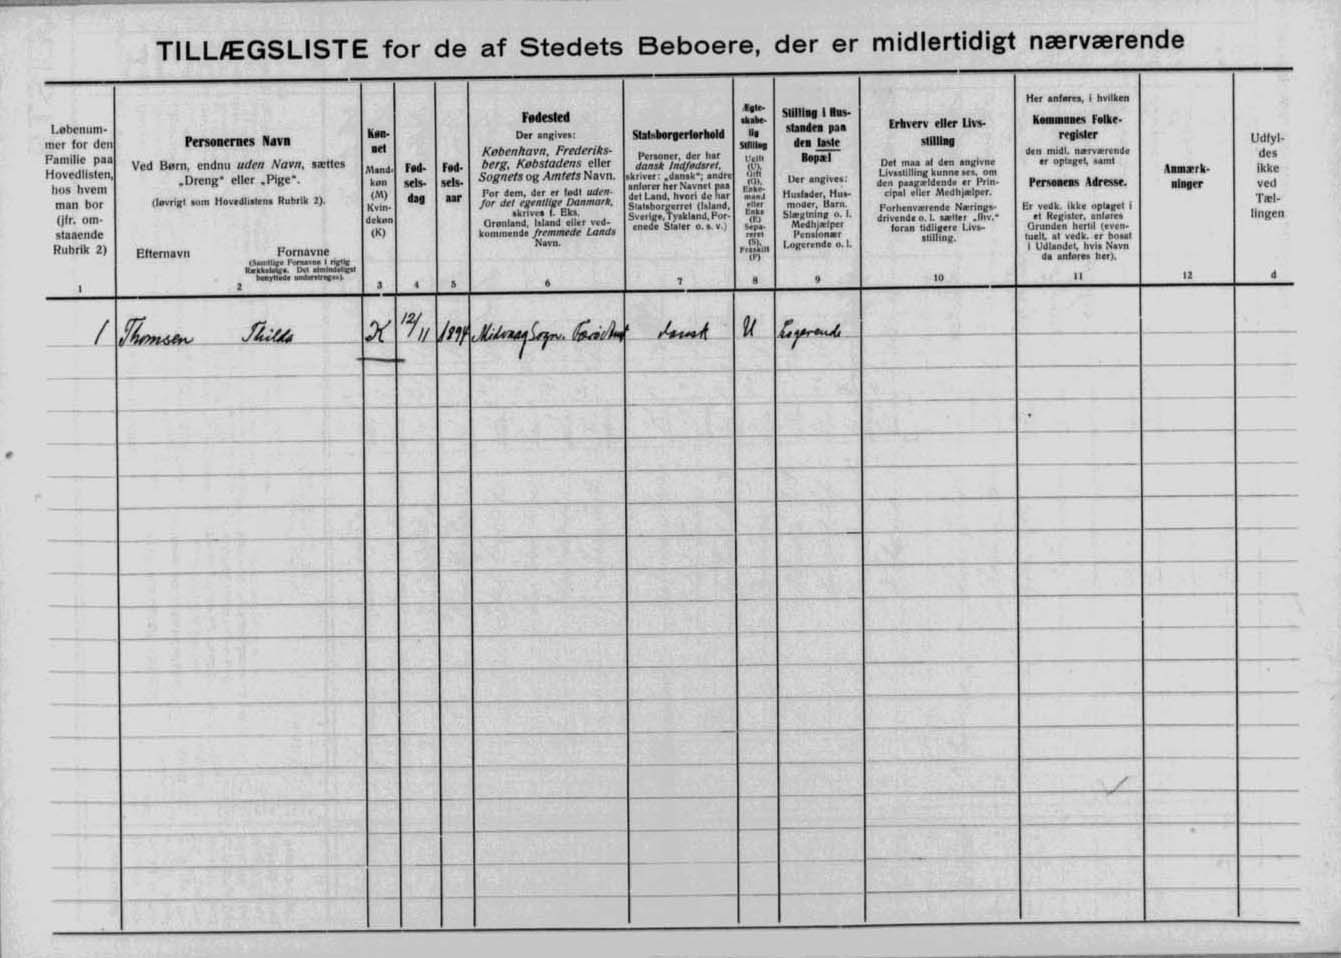 TILLÆGSLISTE for de af Stedets Beboere, der er midlertidigt nærværende
Løbenum-
mer for den
Familie paa
Hovedlisten,
hos hvem
man bor
(jfr. om-
staaende
Rubrik 2)
1
Personernes Navn
Ved Børn, endnu uden Navn, sættes
„Dreng“ eller „Pige“.
(Iøvrigt som Hovedlistens Rubrik 2).
Efternavn
Fornavne
(Samtlige Fornavne i rigtig
Rækkefølge. Det almindeligst
benyttede understreges).
2
Køn-
net
Mand-
køn
(M)
Kvin-
dekøn
(K)
3
Fød-
sels-
dag
4
Fød-
sels-
aar
5
Fødested
Der angives:
København, Frederiks-
berg, Købstadens eller
Sognets og Amtets Navn.
For dem, der er født uden-
for det egentlige Danmark,
skrives f. Eks.
Grønland, Island eller ved-
kommende fremmede Lands
Navn.
6
Statsborgerforhold
Personer, der har
dansk Indfødsret,
skriver: „dansk“; andre
anfører her Navnet paa
det Land, hvori de har
Statsborgerret (Island,
Sverige, Tyskland, For-
enede Stater o. s. v.)
7
Ægte-
skabe-
lig
Stilling
Ugift
(U),
Gift
(G),
Enke-
mand
eller
Enke
(E)
Sepa-
reret
(S),
Fraskilt
(F)
8
Stilling i Hus-
standen paa
den faste
Bopæl
Der angives:
Husfader, Hus-
moder, Barn.
Slægtning o. l.
Medhjælper
Pensionær
Logerende o. l.
9
Erhverv eller Livs-
stilling
Det maa af den angivne
Livsstilling kunne ses, om
den paagældende er Prin-
cipal eller Medhjælper.
Forhenværende Nærings-
drivende o. l. sætter „fhv.“
foran tidligere Livs-
stilling.
10
Her anføres, i hvilken
Kommunes Folke-
register
den midl. nærværende
er optaget, samt
Personens Adresse.
Er vedk. ikke optaget i
et Register, anføres
Grunden hertil (even-
tuelt, at vedk. er bosat
i Udlandet, hvis Navn
da anføres her).
11
Anmærk-
ninger
12
Udfyl-
des
ikke
ved
Tæl-
lingen
d
1 Thomsen Thilda K 12/11 1894 Midvaag Sogn. Færø Amt dansk U Logerende